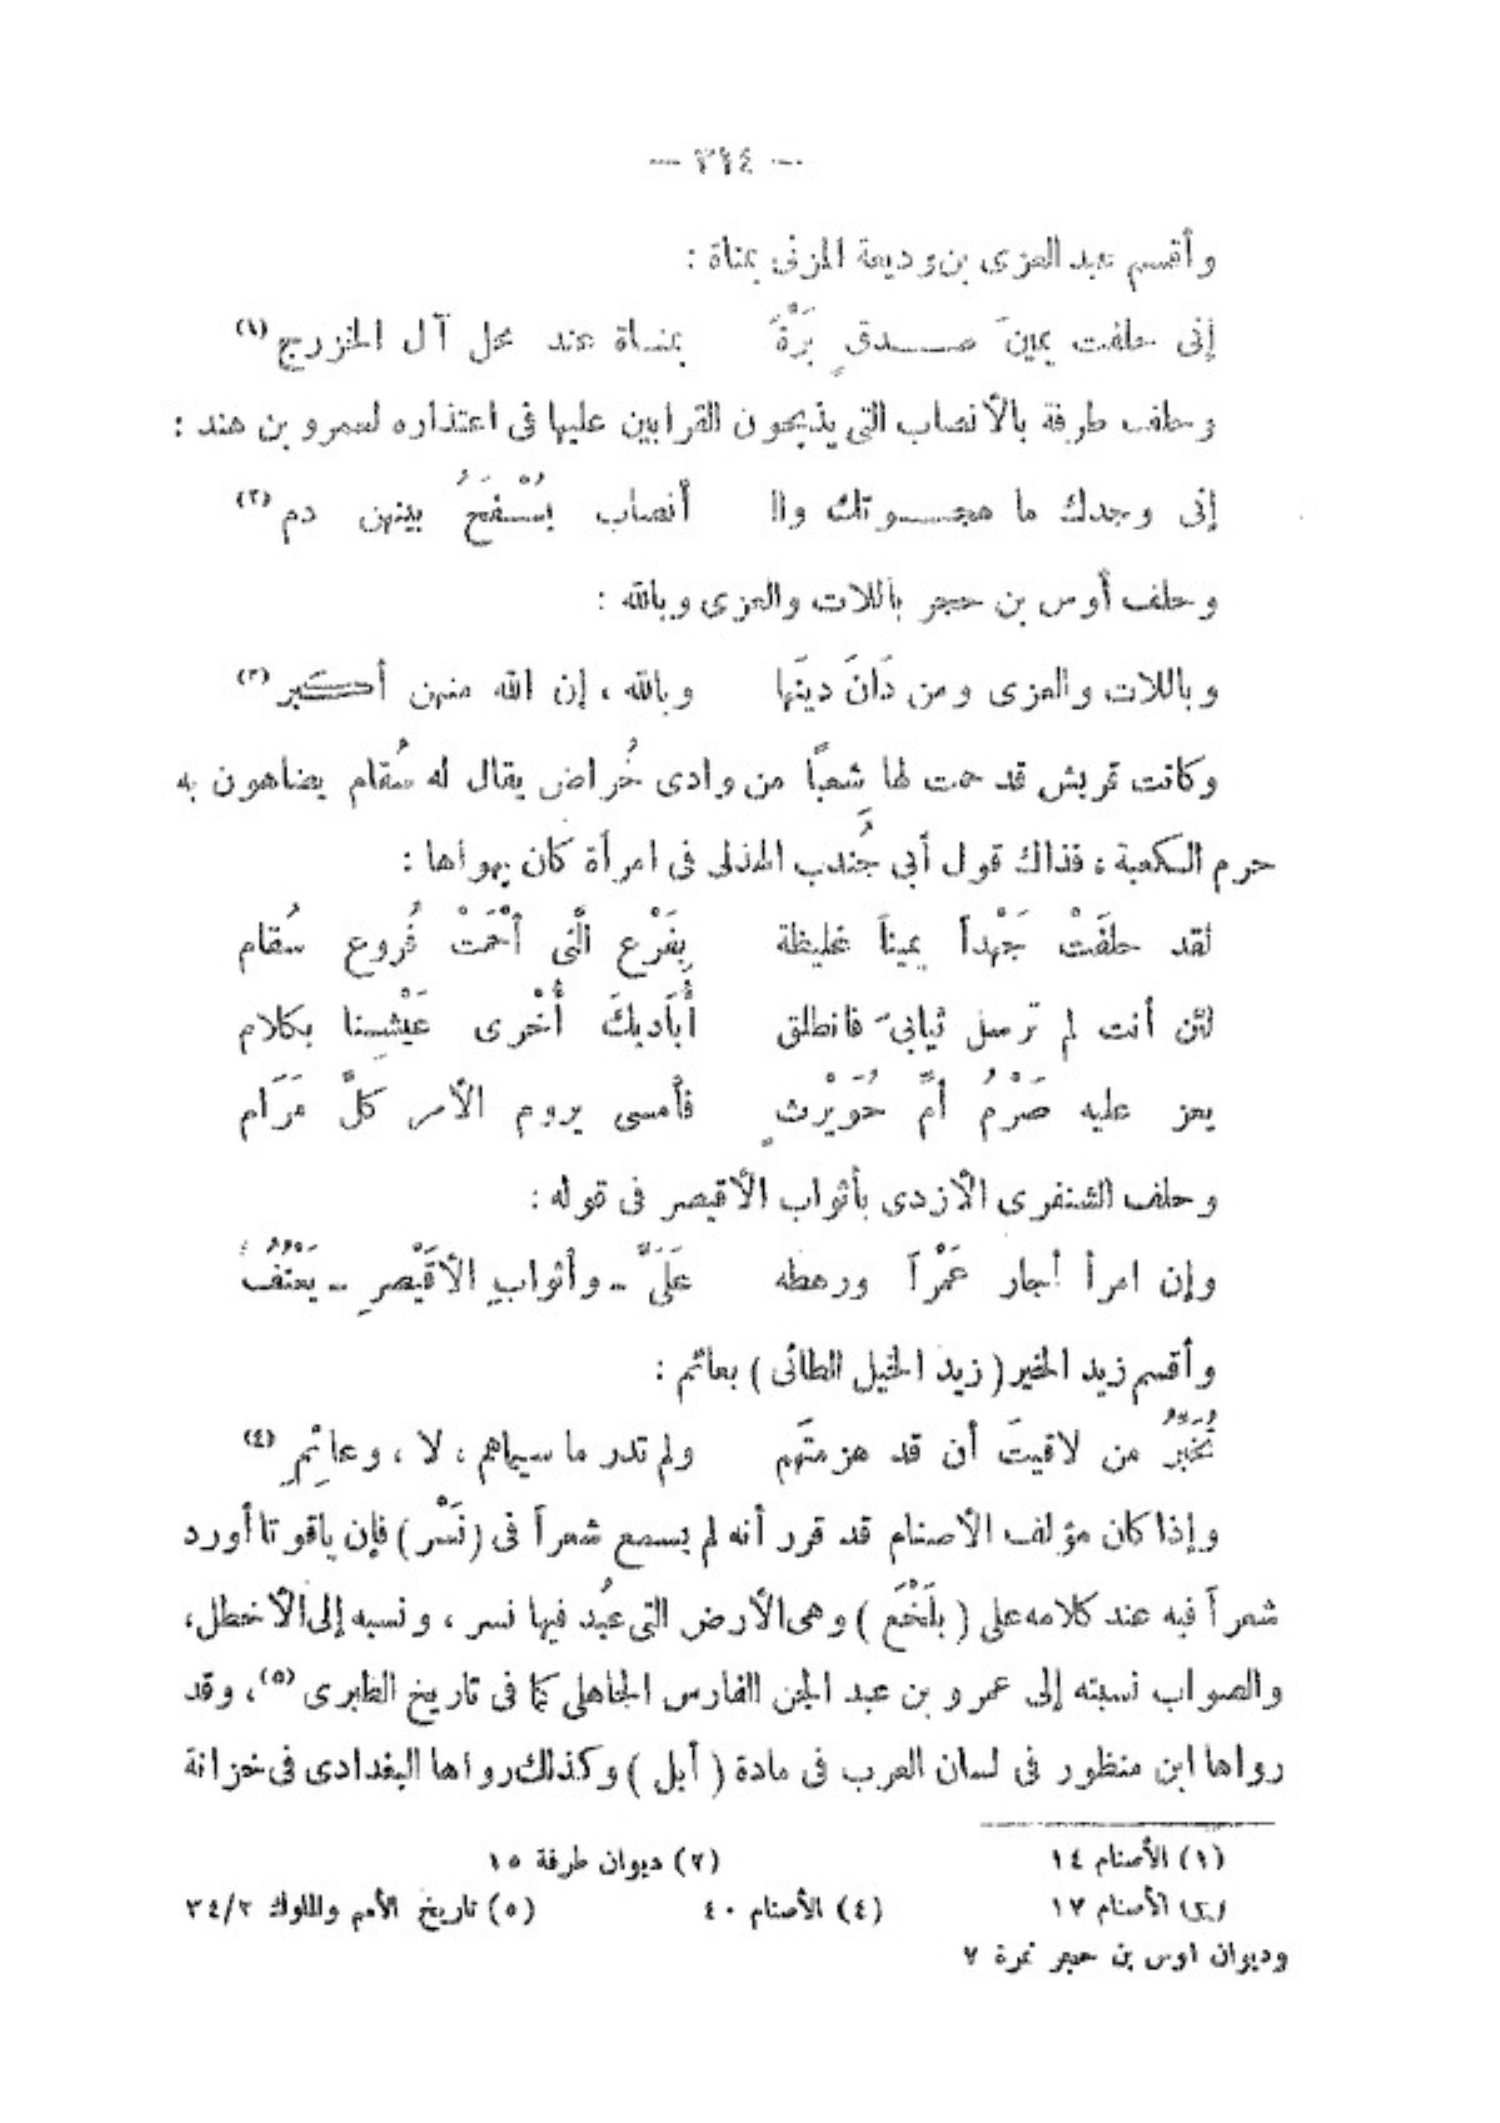 وأقسم عبد العزى بن وديعة المزنى بمناة :
إنى حلفت يمينَ صدقٍ بَرَّةً بمناة عند محل آل الخزرج (١)
وحلف طرفة بالأنصاب التى يذبحون القرابين عليها فى اعتذاره لعمرو بن هند :
إنى وجدك ما هجوتك والـ أنصاب يُسْفَحُ بينهن دم (٢)
وحلف أوس بن حجر باللات والعزى وبالله :
وباللات والعزى ومن دَانَ دينَها وبالله ، إن الله منهن أكبر (٣)
وكانت قريش قد حمت لها شِعبًا من وادى حُراض يقال له سُقام يضاهون به
حرم الكعبة ، فذاك قول أبى جُندَب الهذلى فى امرأة كان يهواها :
لقد حلفَتْ جَهْداً يميناً غليظة بِفَرْع الَّتى أحْمَتْ فُروع سُقام
لئن أنت لم ترسل ثيابىَ فانطلق أُبَاديكَ أُخْرى عَيْشِنا بكلام
يعز عليه صَرْمُ أمِّ حُوَيْرثٍ فأمسى يروم الأمر كلَّ مَرَام
وحلف الشنفرى الأزدى بأثواب الأقيصر فى قوله :
وإن امرأ أجار عَمْراً ورهطه علَىَّ - وأثوابِ الأقَيْصرِ - يَعْنُفُ
وأقسم زيد الخير ( زيد الخيل الطائى ) بعائم :
تُخَبِّرُ من لاقيتَ أن قد هزمتَهم ولم تدر ما سيماهم ، لا ، وعائِمِ (٤)
وإذا كان مؤلف الأصنام قد قرر أنه لم يسمع شعراً فى ( نَسْر ) فإن ياقوتا أورد
شعراً فيه عند كلامه على ( بلَخْع ) وهى الأرض التى عُبد فيها نسر ، ونسبه إلى الأخطل ،
والصواب نسبته إلى عمرو بن عبد الجن الفارس الجاهلى كما فى تاريخ الطبرى (٥) ، وقد
رواها ابن منظور فى لسان العرب فى مادة ( أبل ) وكذلك رواها البغدادى فى خزانة
(١) الأصنام ١٤ (٢) ديوان طرفة ١٥
الأصنام ١٧ (٤) الأصنام ٤٠ (٥) تاريخ الأمم والملوك ٣٤/٢
وديوان اوس بن حجر نمرة ٧